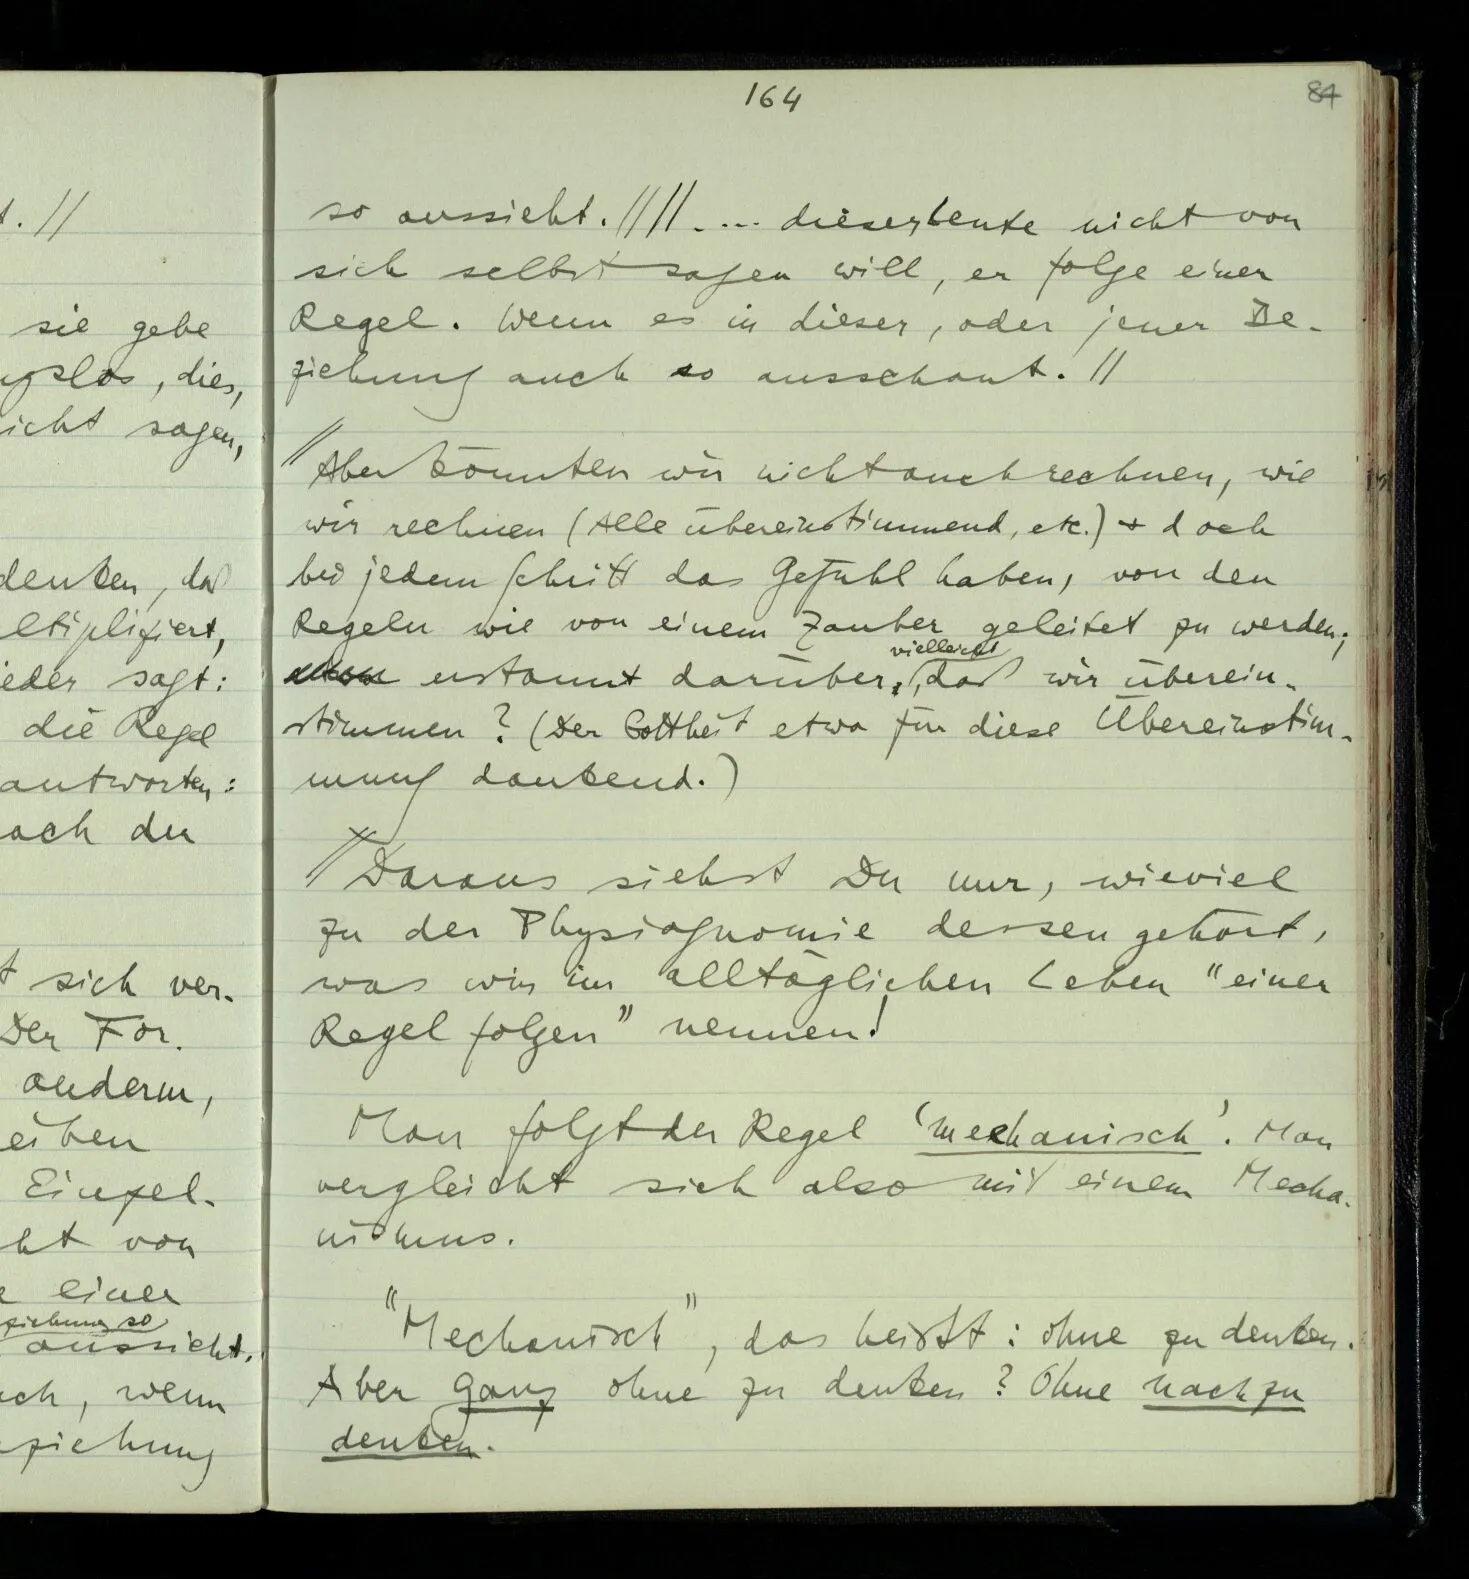 164
84
t. //
sie gebe
ngslos, dies,
icht sagen,
denken, daß
ltipliziert,
ieder sagt:
die Regel
antworten:
ach der
t sich ver-
Der For.
anderm,
eiben
Einzel-
cht von
e einer
ziehung so
aussieht.
ch, wenn
ziehung
so aussieht. //// .... dieser Leute nicht von
sich selbst sagen will, er folge einer
Regel. Wenn es in dieser, oder jener Be-
ziehung auch so ausschaut. //
// Aber könnten wir nicht auch rechnen, wie
wir rechnen (Alle übereinstimmend, etc.) + doch
bei jedem Schritt das Gefühl haben, von den
Regeln wie von einem Zauber geleitet zu werden;
vielleicht
erstaunt darüber, daß wir überein-
stimmen? (Der Gottheit etwa für diese Übereinstim-
mung dankend.)
// Daraus siehst Du nur, wieviel
zu der Physiognomie dessen gehört,
was wir im alltäglichen Leben "einer
Regel folgen" nennen!
Man folgt der Regel 'mechanisch'. Man
vergleicht sich also mit einem Mecha-
nismus.
"Mechanisch", das heißt: ohne zu denken.
Aber ganz ohne zu denken? Ohne nachzu
denken.